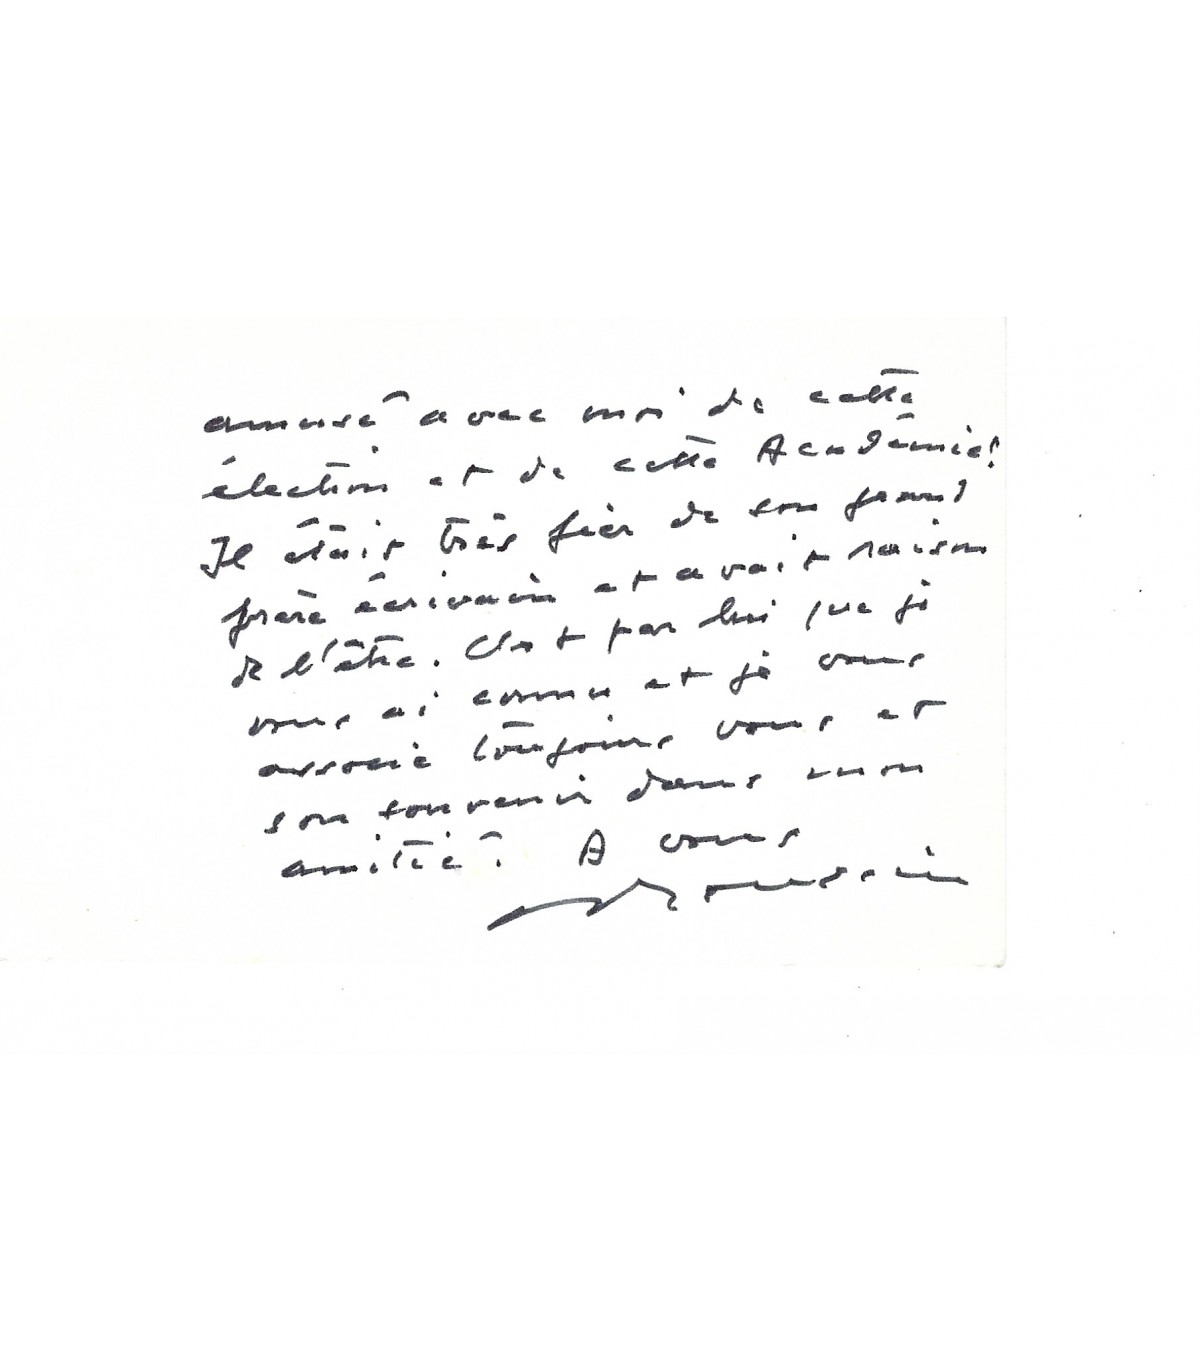 amusé avec moi de cette
élection et de cette Académie!
Il était très fier de son grand
frère écrivain et avait raison
de l'être. C'est par lui que je
vous ai connu et je vous
associe toujours vous et
son souvenir dans mon
amitié. A vous
Roussin